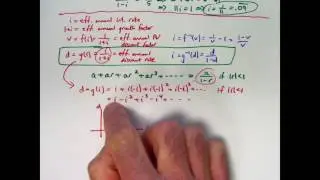 i = eff. annual int. rate
1+i = eff. annual growth factor
v = f(i) = 1/(1+i) = eff. annual PV discount factor
i = f⁻¹(v) = (1-v)/v
d = g(i) = i/(1+i) = eff. annual discount rate
i = g⁻¹(d) = d/(1-d)
a + ar + ar² + ar³ + ----- = a/(1-r) if |r|<1
d = g(i) = i + i(-i) + i(-i)² + i(-i)³ + ... if |i|<1
= i - i² + i³ - i⁴ + - - -